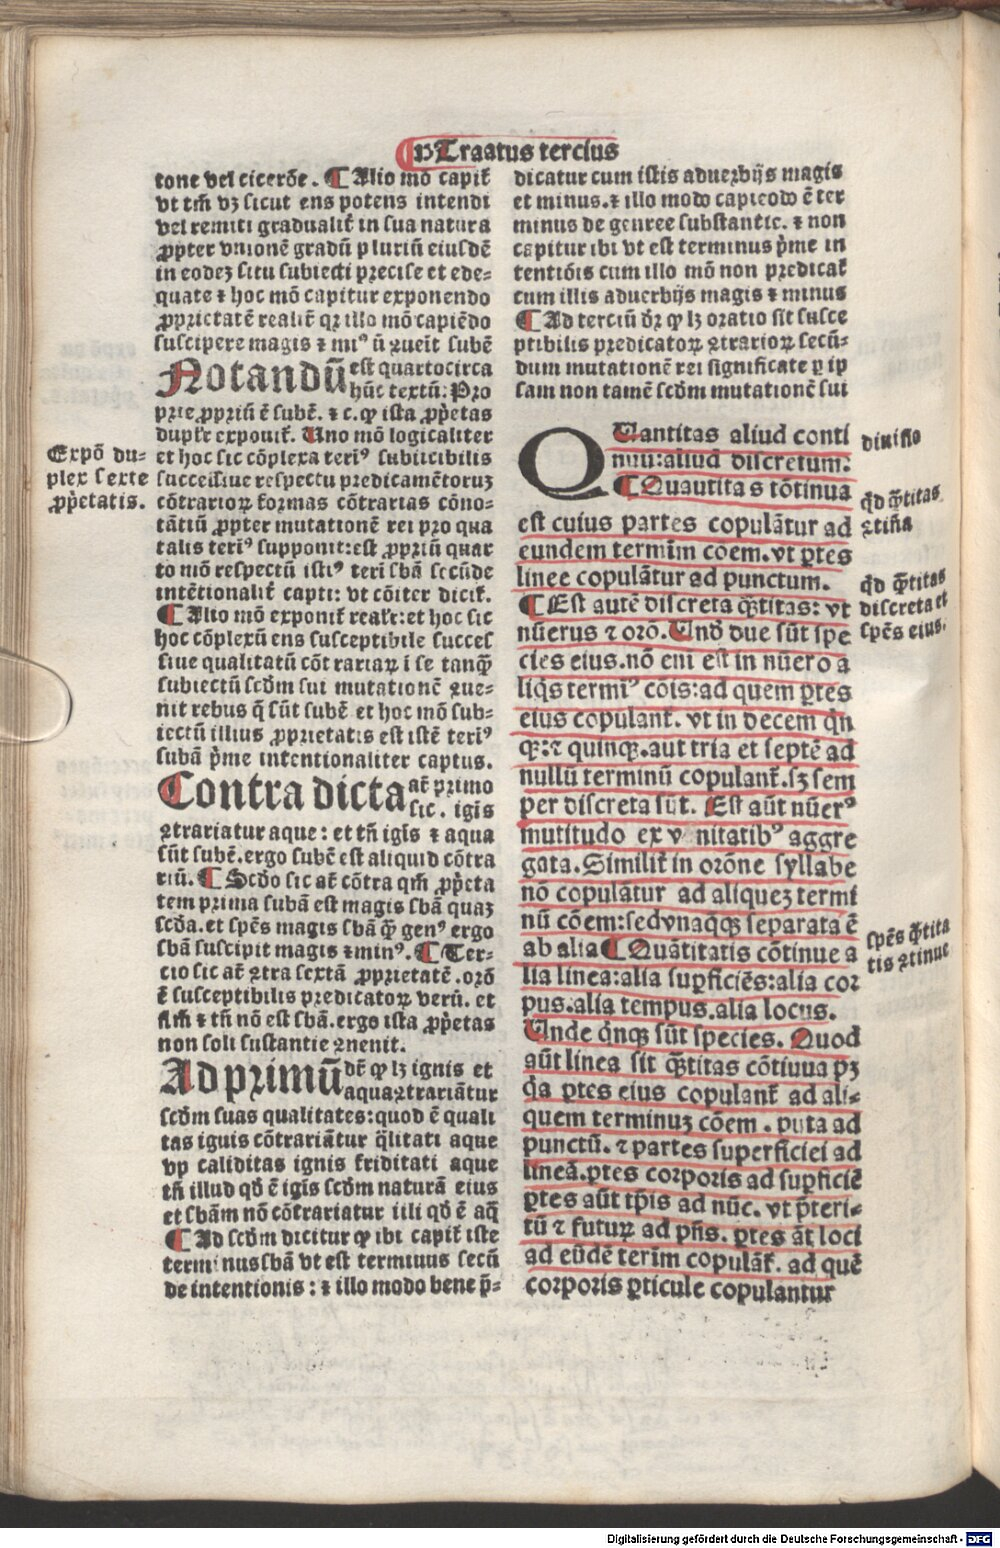 Traatus tercius
tone vel cicerōe. ¶ Alio mō capit᷑
vt tm̄ vꝫ sicut ens potens intendi
vel remiti gradualit᷑ in sua natura
ꝓpter vnionē gradū pluriū eiusdē
in eodeꝫ situ subiecti precise et ede⸗
quate ⁊ hoc mō capitur exponendo
ꝓprietatē realit᷑ qꝛ illo mō capiēdo
suscipere magis ⁊ miꝰ ñ ꝯueīt subē
Notandū est quarto circa
hūc textū: Pro
prie ꝓpriū ē subē. ⁊ c. ꝙ ista ꝓp̄etas
duplr̄ exponit᷑. Uno mō logicaliter
et hoc sic cōplexa teriꝰ subiicibilis
successiue respectu predicamētoruꝫ
cōtrarioꝝ formas cōtrarias cōno⸗
tātiū ꝓpter mutationē rei pro qua
talis teriꝰ supponit: est ꝓpriū quar
to mō respectū istiꝰ teri sbā secūde
intētionalit᷑ capti: vt cōiter dicit᷑.
¶ Alio mō exponit᷑ realr̄: et hoc sic
hoc cōplexū ens susceptibile succes
siue qualitatū cōt rariaꝝ i se tanq̄
subiectū scd̄m sui mutationē ꝯue⸗
nit rebus q̄ sūt subē et hoc mō sub⸗
iectū illius ꝓprietatis est istē teriꝰ
subā p̄me intentionaliter captus.
Contra dicta at᷑ primo
sic. igīs
ꝯtrariatur aque: et tn̄ igīs ⁊ aqua
sūt subē. ergo subē est aliquid cōtra
riū. ¶ Scd̄o sic at᷑ cōtra qm̄ ꝓp̄eta
tem prima subā est magis sbā quaꝫ
scd̄a. et spēs magis sbā q̄ genꝰ ergo
sbā suscipit magis ⁊ minꝰ. ¶ Ter⸗
cio sic at᷑ ꝯtra sextā ꝓprietatē. orō
ē susceptibilis predicatoꝝ verū. et
flm̄ ⁊ tn̄ nō est sbā. ergo ista ꝓp̄etas
non soli sustantie ꝯuenit.
Ad primū dr̄ ꝙ lꝫ ignis et
aqua ꝯtrariātur
scd̄m suas qualitates: quod ē quali
tas ignis cōtrariātur q̄litati aque
vp caliditas ignis friditati aque
tn̄ illud qd̄ ē igīs scd̄m naturā eius
et sbām nō cōtrariatur illi qd̄ ē aq̄
¶ Ad scd̄m dicitur ꝙ ibi capit᷑ iste
terminus sbā vt est terminus secū
de intentionis: ⁊ illo modo bene p̄⸗
dicatur cum istis aduerbijs magis
et minus. ⁊ illo modo capieodo ē ter
minus de genree substantie. ⁊ non
capitur ibi vt est terminus p̄me in
tentiōis cum illo mō non predicat᷑
cum illis aduerbijs magis ⁊ minus
¶ Ad terciū dr̄ ꝙ lꝫ oratio sit susce
ptibilis predicatoꝝ ꝯtrarioꝝ secū⸗
dum mutationē rei significate ꝑ ip
sam non tamē scd̄m mutationē sui
Quantitas aliud conti
nuu: aliud discretum.
¶ Quautita s tōtinua
est cuius partes copulātur ad
eundem termīm cōem. vt ꝑtes
linee copulātur ad punctum.
¶ Est autē discreta q̄titas: vt
nūerus ⁊ orō. Und̄ due sūt spe
cies eius. nō eni est in nūero a
liq̄s termiꝰ cōis: ad quem ꝑtes
eius copulant᷑. vt in decem q̄n
qꝫ: ⁊ quinqꝫ. aut tria et septē ad
nullū terminū copulant᷑. sꝫ sem
per discreta sūt. Est aūt nūerꝰ
mutitudo ex v nitatibꝰ aggre
gata. Similit᷑ in orōne syllabe
nō copulātur ad aliqueꝫ termi
nū cōem: sed vnaq̄qꝫ separata ē
ab alia ¶ Quātitatis cōtinue a
lia linea: alia suꝑficiēs: alia cor
pus. alia tempus. alia locus.
Unde q̄nqꝫ sūt species. Quod
aūt linea sit q̄titas cōtiuua pꝫ
q̄a ꝑtes eius copulant᷑ ad ali⸗
quem terminuꝫ cōem. puta ad
punctū. ⁊ partes superficiei ad
lineā. ꝑtes corporis ad suꝑficiē
ꝑtes aūt tp̄is ad nūc. vt p̄teri⸗
tū ⁊ futuꝝ ad pn̄s. ꝑtes āt loci
ad eūdē terīm copulāt᷑. ad quē
corporis ꝑticule copulantur
Expō du⸗
plex sexte
ꝓp̄etatis.
diuisio
qd̄ q̄titas
ꝯtiña
qd̄ q̄titas
discreta et
spēs eius.
spēs q̄tita
tis ꝯtinue
Digitalisierung gefördert durch die Deutsche Forschungsgemeinschaft - DFG